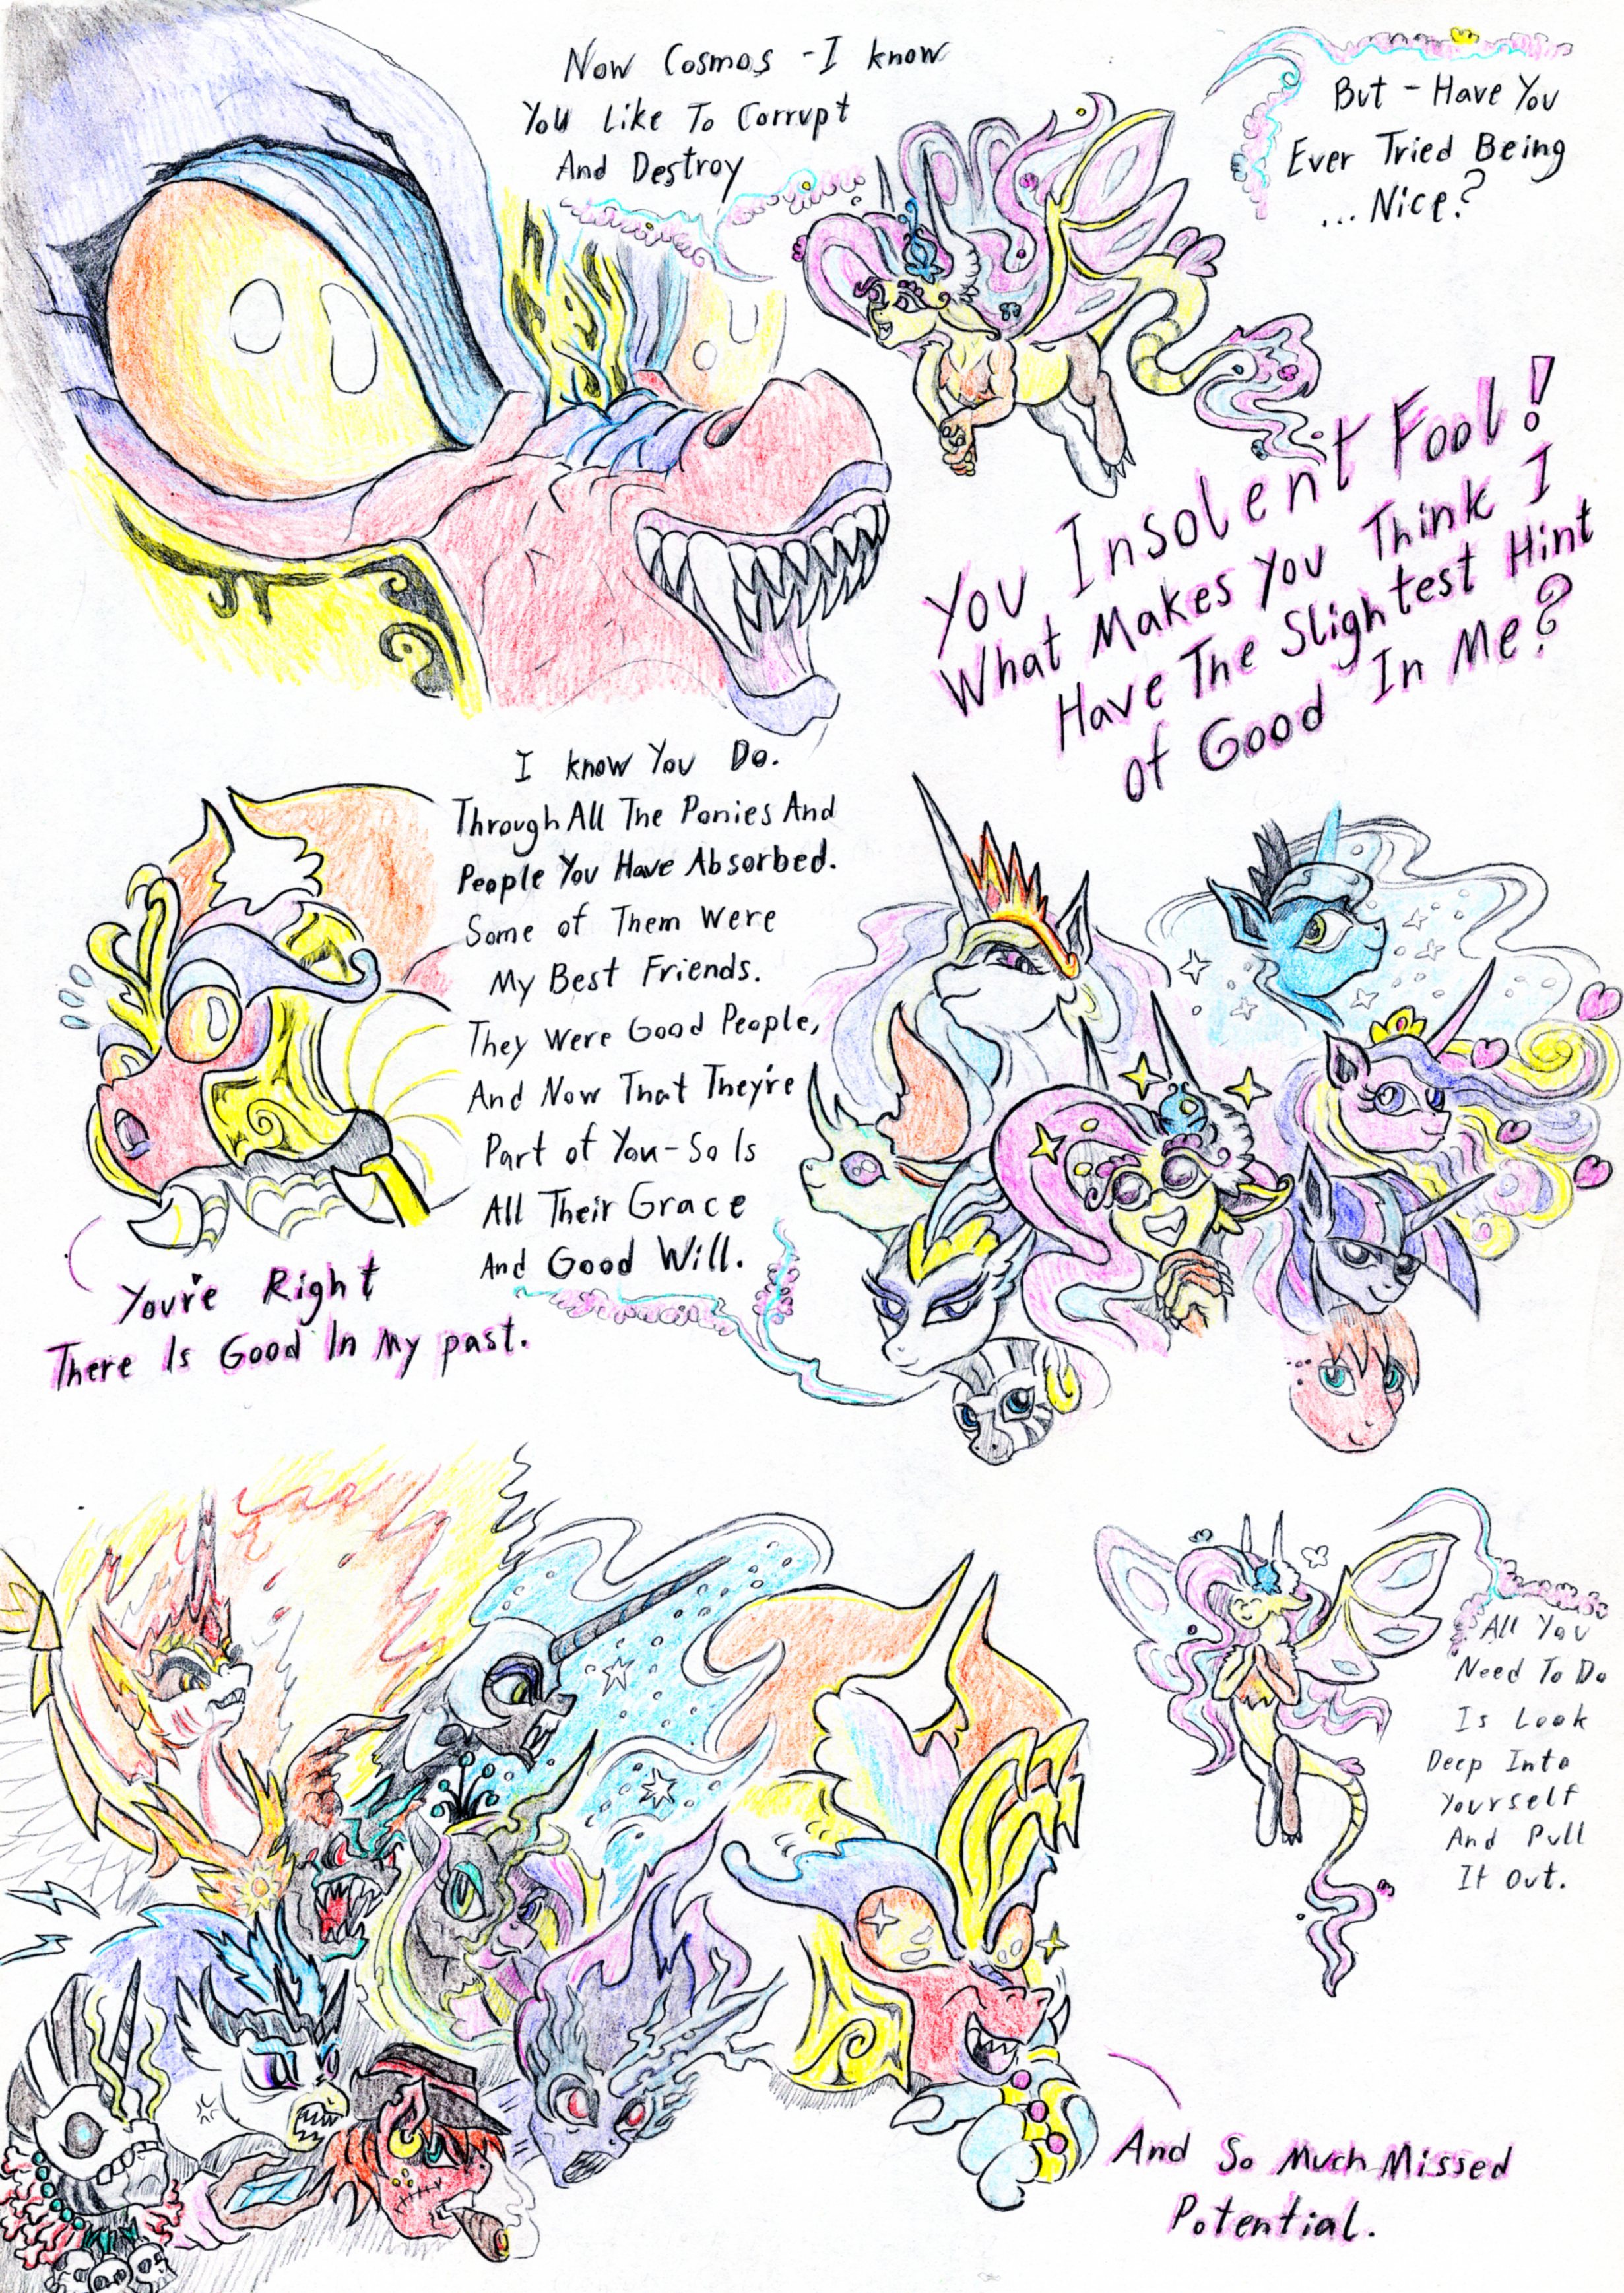 Now Cosmos - I know
You Like To Corrupt
And Destroy
But - Have You
Ever Tried Being
... Nice?
You Insolent Fool!
What Makes You Think I
Have The Slightest Hint
Of Good In Me?
I know You Do.
Through All The Ponies And
People You Have Absorbed.
Some of Them Were
My Best Friends.
They Were Good People,
And Now That They're
Part of You - So Is
All Their Grace
And Good Will.
You're Right
There Is Good In My past.
All You
Need To Do
Is Look
Deep Into
Yourself
And Pull
It Out.
And So Much Missed
Potential.